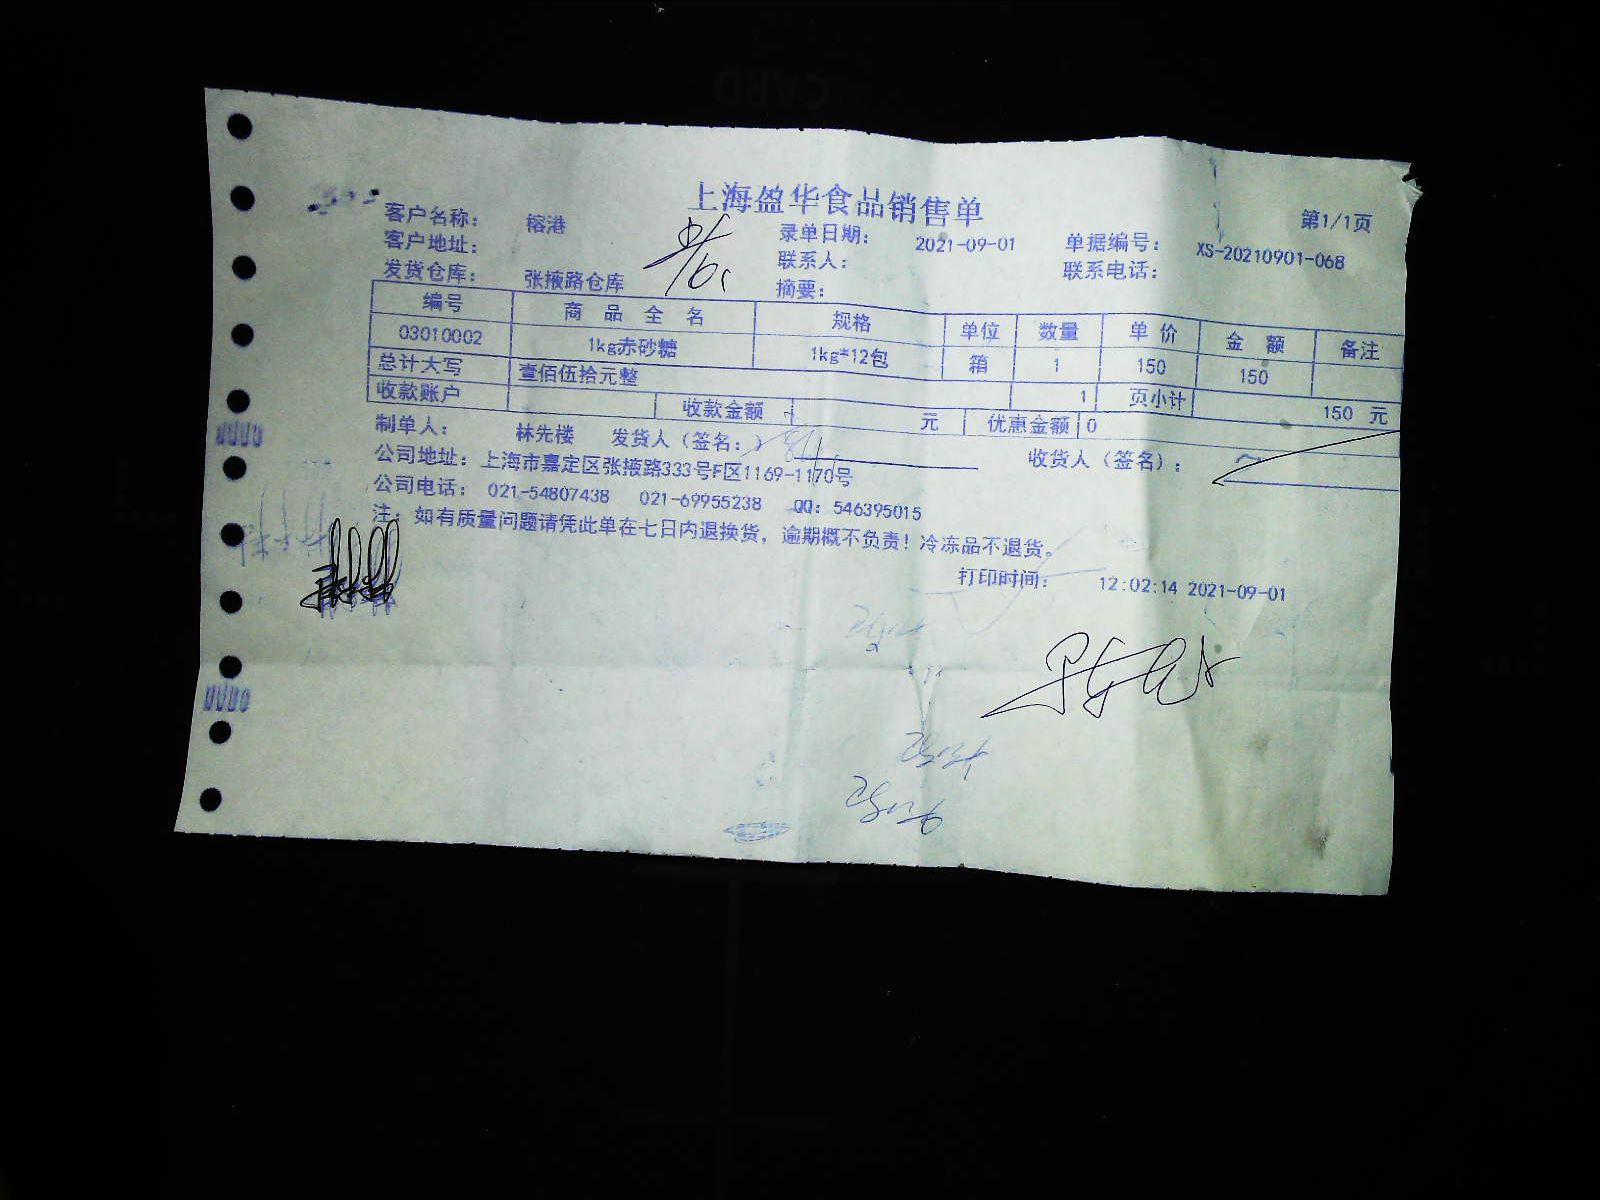 上海盈华食品销售单
第1/1页
客户名称： 榕港 录单日期： 2021-09-01 单据编号： XS-20210901-068
客户地址： 联系人： 联系电话：
发货仓库： 张掖路仓库 摘要：
编号 商品全名 规格 单位 数量 单价 金额 备注
03010002 1kg赤砂糖 1kg*12包 箱 1 150 150
总计大写 壹佰伍拾元整 1 页小计 150 元
收款账户 收款金额 元 优惠金额 0
制单人： 林先楼 发货人（签名：） 收货人（签名）：
公司地址：上海市嘉定区张掖路333号F区1169-1170号
公司电话： 021-54807438 021-69955238 QQ：546395015
注：如有质量问题请凭此单在七日内退换货，逾期概不负责！冷冻品不退货。
打印时间： 12:02:14 2021-09-01